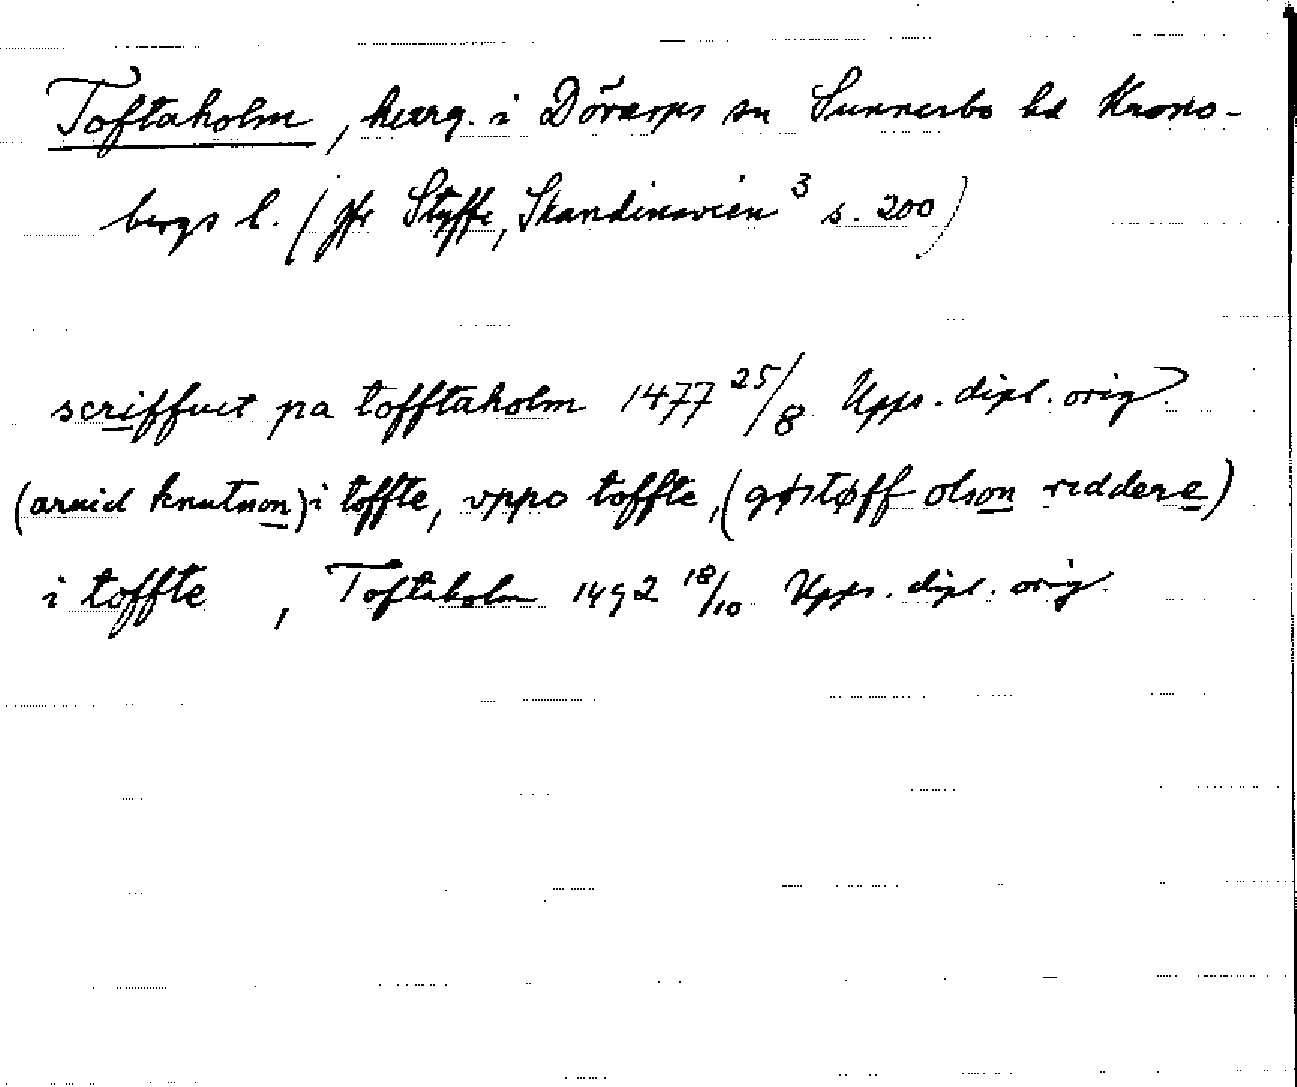 Toftaholm, herrg. i Dörarps sn Sunnerbo hd Krono-
bergs l. (jfr Styffe, Skandinavien³ s. 200)
scriffuet pa tofftaholm 1477 25/8 Upps. dipl. orig.
(aruid knutson) i toffte, vppo toffte, (gøstøff olson riddere)
i toffte , Toftaholm 1492 18/10 Upps. dipl. orig